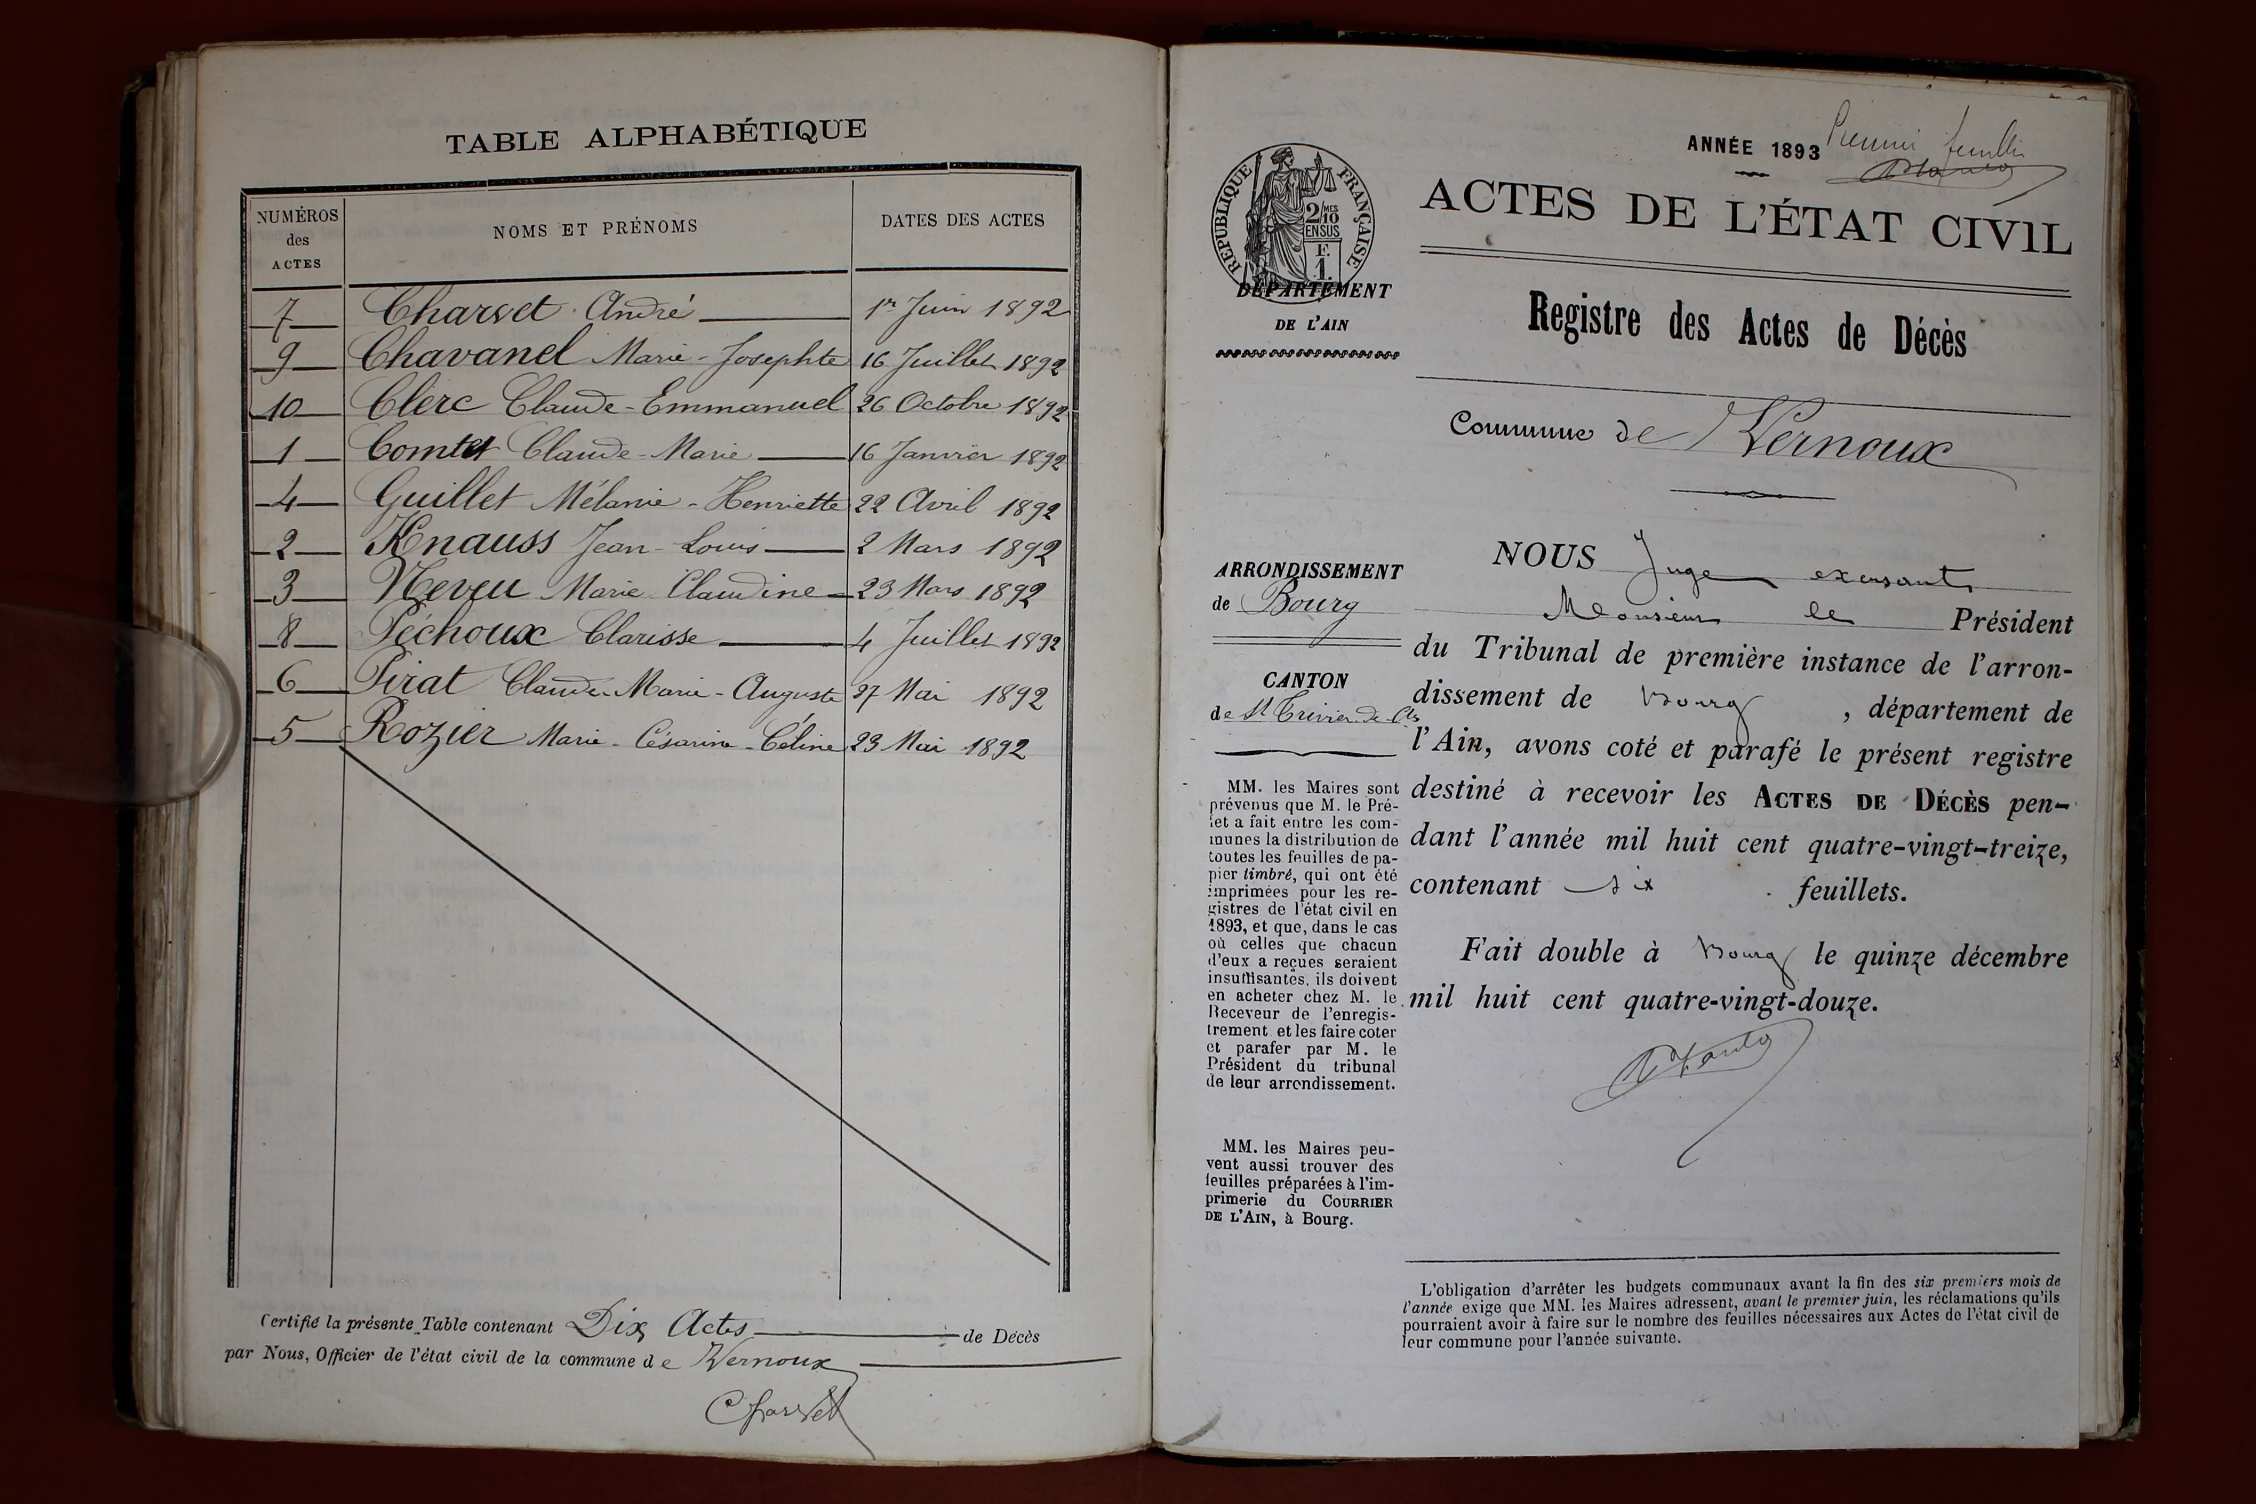 TABLE ALPHABÉTIQUE
NUMÉROS des ACTES NOMS ET PRÉNOMS DATES DES ACTES
7 Charvet André 1er Juin 1892
9 Chavanel Marie-Josephte 16 Juillet 1892
10 Clerc Claude-Emmanuel 26 Octobre 1892
1 Comtet Claude-Marie 16 Janvier 1892
4 Guillet Mélanie-Henriette 22 Avril 1892
2 Knauss Jean-Louis 2 Mars 1892
3 Neveu Marie Claudine 23 Mars 1892
8 Péchoux Clarisse 4 Juillet 1892
6 Pirat Claude-Marie-Auguste 27 Mai 1892
5 Rozier Marie-Césarine-Céline 23 Mai 1892
Certifié la présente Table contenant Dix Actes de Décès
par Nous, Officier de l'état civil de la commune de Vernoux
Charvet
ANNÉE 1893
Premier feuillet
RÉPUBLIQUE FRANÇAISE
2/10 MES
EN SUS
F.
1.
ACTES DE L'ÉTAT CIVIL
DÉPARTEMENT
DE L'AIN
Registre des Actes de Décès
Commune de Vernoux
ARRONDISSEMENT
de Bourg
CANTON
de St Trivier-de-Cts
MM. les Maires sont
prévenus que M. le Pré-
fet a fait entre les com-
munes la distribution de
toutes les feuilles de pa-
pier timbré, qui ont été
imprimées pour les re-
gistres de l'état civil en
1893, et que, dans le cas
où celles que chacun
d'eux a reçues seraient
insuffisantes, ils doivent
en acheter chez M. le
Receveur de l'enregis-
trement et les faire coter
et parafer par M. le
Président du tribunal
de leur arrondissement.
MM. les Maires peu-
vent aussi trouver des
feuilles préparées à l'im-
primerie du COURRIER
DE L'AIN, à Bourg.
NOUS Juge exerçant
Monsieur le Président
du Tribunal de première instance de l'arron-
dissement de Bourg, département de
l'Ain, avons coté et parafé le présent registre
destiné à recevoir les ACTES DE DÉCÈS pen-
dant l'année mil huit cent quatre-vingt-treize,
contenant six feuillets.
Fait double à Bourg le quinze décembre
mil huit cent quatre-vingt-douze.
L'obligation d'arrêter les budgets communaux avant la fin des six premiers mois de
l'année exige que MM. les Maires adressent, avant le premier juin, les réclamations qu'ils
pourraient avoir à faire sur le nombre des feuilles nécessaires aux Actes de l'état civil de
leur commune pour l'année suivante.